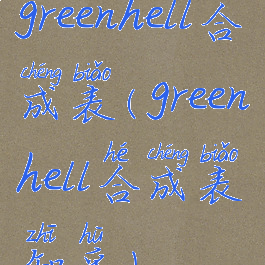 greenhell合
chéng biǎo
成表(green
hé chéng biǎo
hell合成表
zhī hū
知乎)